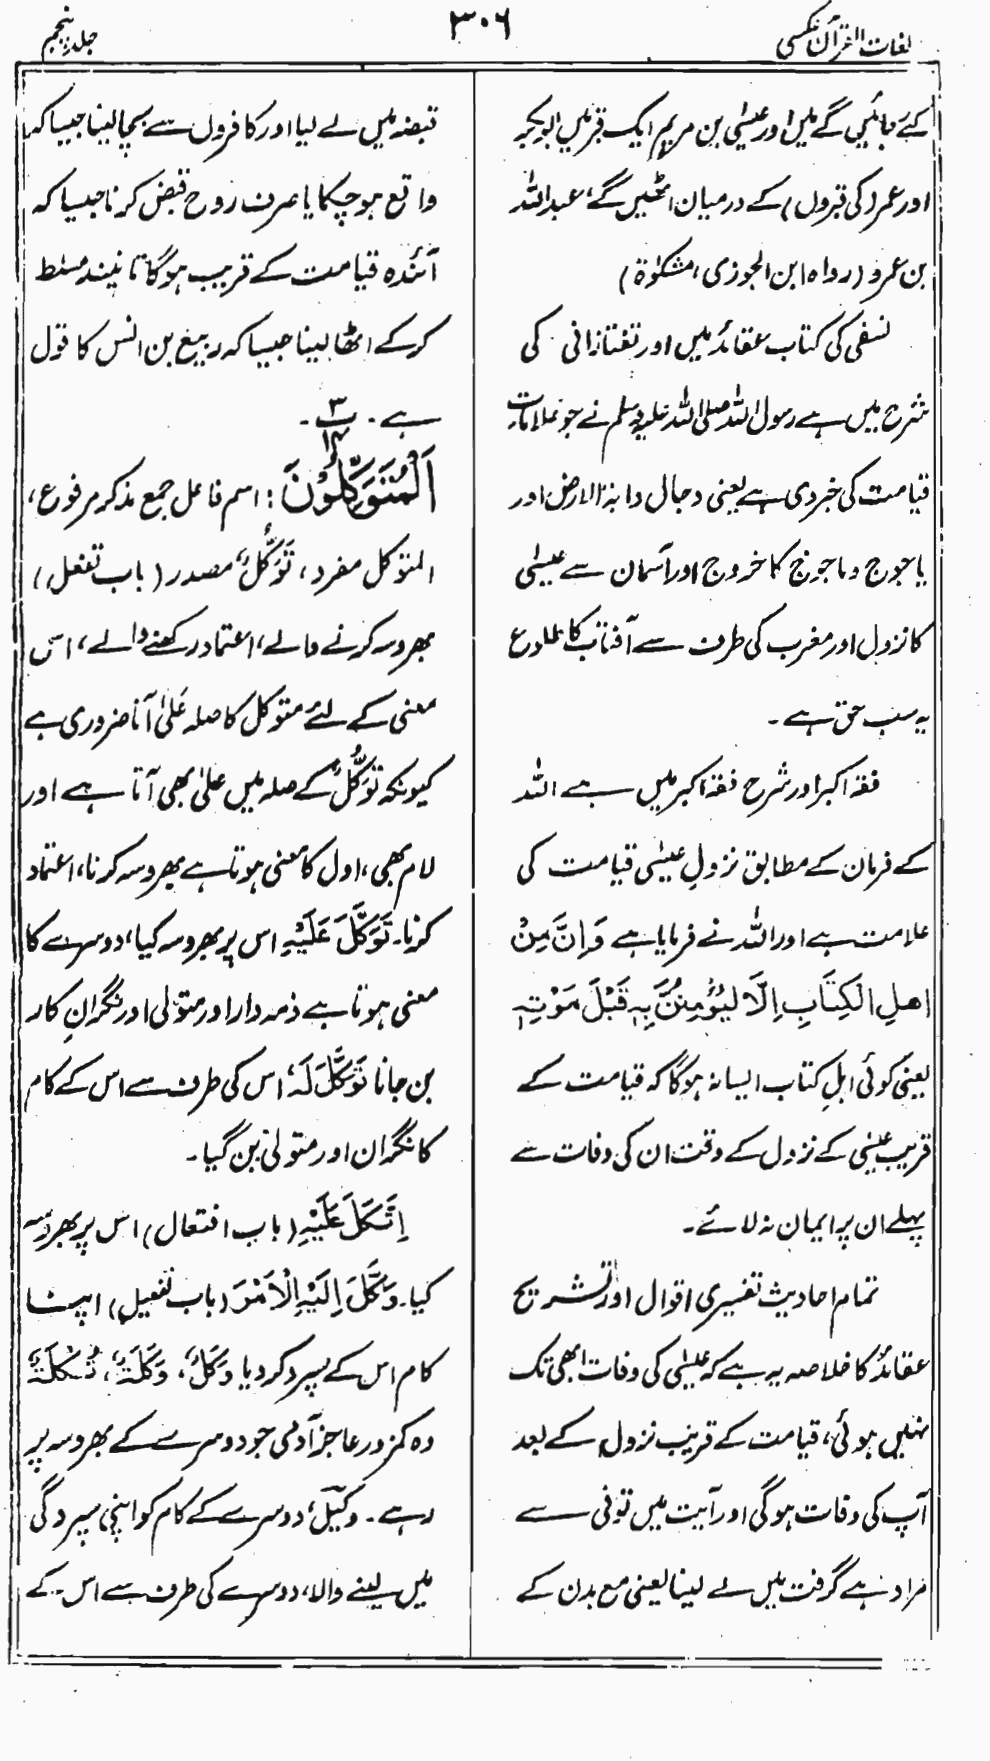 لغات القرآن عکسی
۳۰۶
جلد پنجم
کئے جائیں گے میں اور عیسٰی بن مریم ایک قبر میں ابوبکر
اور عمر (کی قبروں) کے درمیان اٹھیں گے، عبداللہ
بن عمرو (رواہ ابن الجوزی، مشکوٰۃ)
نسفی کی کتاب عقائد میں اور تفتازانی کی
شرح میں ہے رسول اللہ صلی اللہ علیہ وسلم نے جو علامات
قیامت کی خبر دی ہے یعنی دجال دابۃ الارض اور
یاجوج وماجوج کا خروج اور آسمان سے عیسٰی
کا نزول اور مغرب کی طرف سے آفتاب کا طلوع
یہ سب حق ہے۔
فقہ اکبر اور شرح فقہ اکبر میں ہے اللہ
کے فرمان کے مطابق نزولِ عیسٰی قیامت کی
علامت ہے اور اللہ نے فرمایا ہے وَاِنَّ مِنْ
اھلِ الْکِتَابِ اِلَّا لَیُؤْمِنَنَّ بِہٖ قَبْلَ مَوْتِہٖ
یعنی کوئی اہلِ کتاب ایسا نہ ہوگا کہ قیامت کے
قریب عیسٰی کے نزول کے وقت ان کی وفات سے
پہلے ان پر ایمان نہ لائے۔
تمام احادیث تفسیری اقوال اور تشریح
عقائد کا خلاصہ یہ ہے کہ عیسٰی کی وفات ابھی تک
نہیں ہوئی، قیامت کے قریب نزول کے بعد
آپ کی وفات ہوگی اور آیت میں توفی سے
مراد ہے گرفت میں لے لینا یعنی مع بدن کے
قبضہ میں لے لیا اور کافروں سے بچا لینا جیسا کہ
واقع ہو چکا یا صرف روح قبض کرنا جیسا کہ
آئندہ قیامت کے قریب ہوگا تا نیند مسلط
کرکے اٹھا لینا جیسا کہ ربیع بن انس کا قول
ہے۔ پ ۳ ۱۴۔
اَلْمُتَوَکِّلُوْنَ : اسم فاعل جمع مذکر مرفوع،
المتوکل مفرد، تَوَکُّلٌ مصدر (باب تفعل)
بھروسہ کرنے والے، اعتماد رکھنے والے، اس
معنی کے لئے متوکل کا صلہ عَلیٰ آنا ضروری ہے
کیونکہ تَوَکُّلٌ کے صلہ میں علیٰ بھی آتا ہے اور
لام بھی، اول کا معنی ہوتا ہے بھروسہ کرنا، اعتماد
کرنا۔ تَوَکَّلَ عَلَیْہِ اس پر بھروسہ کیا، دوسرے کا
معنی ہوتا ہے ذمہ دار اور متولی اور نگرانِ کار
بن جانا تَوَکَّلَ لَہٗ اس کی طرف سے اس کے کام
کا نگران اور متولی بن گیا۔
اِتَّکَلَ عَلَیْہِ (باب افتعال) اس پر بھروسہ
کیا۔ وَکَّلَ اِلَیْہِ الْاَمْرَ (باب تفعیل) اپنا
کام اس کے سپرد کر دیا وَکَلٌ، وَکَلَۃٌ، تُکَلَۃٌ
وہ کمزور عاجز آدمی جو دوسرے کے بھروسہ پر
رہے۔ وکیلٌ، دوسرے کے کام کو اپنی سپردگی
میں لینے والا، دوسرے کی طرف سے اس کے